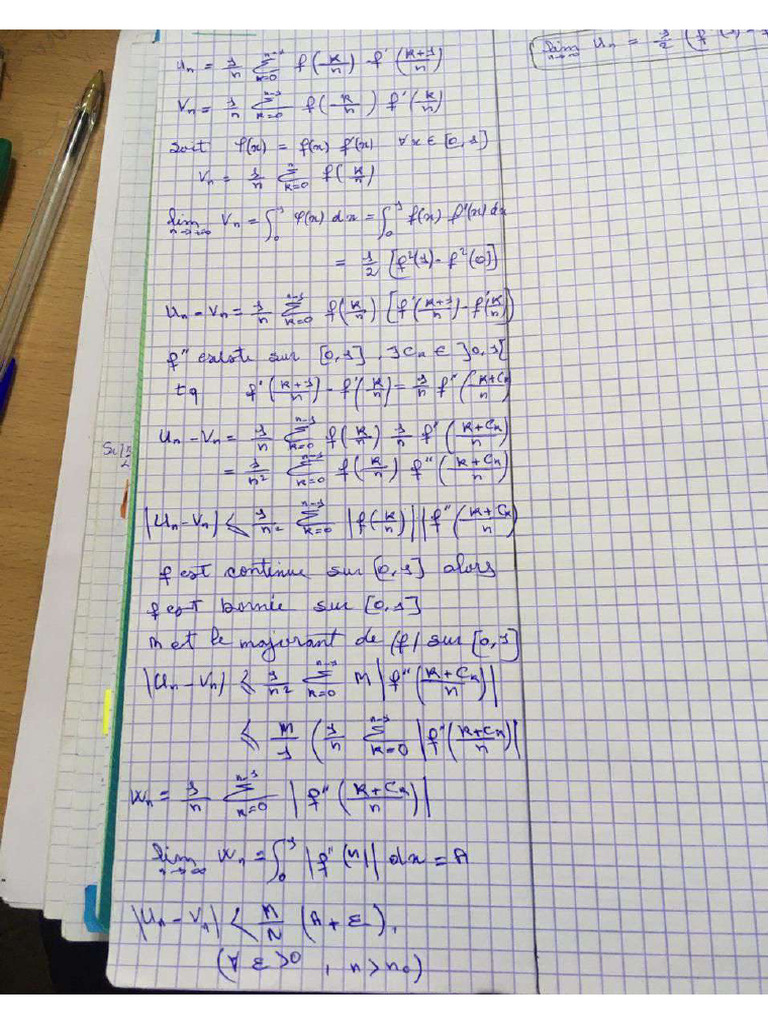 Uₙ = 1/n Σ_{k=0}^{n-1} f(k/n) f'((k+1)/n)
lim_{n→∞} Uₙ = 1/2 (f
Vₙ = 1/n Σ_{k=0}^{n-1} f(k/n) f'(k/n)
Soit φ(x) = f(x) f'(x) ∀x ∈ [0,1]
Vₙ = 1/n Σ_{k=0} f(k/n)
lim_{n→∞} Vₙ = ∫₀¹ φ(x) dx = ∫₀¹ f(x) f'(x) dx
= 1/2 [f²(1) - f²(0)]
Uₙ - Vₙ = 1/n Σ_{k=0}^{n-1} f(k/n) [f'((k+1)/n) - f'(k/n)]
f'' existe sur [0,1], ∃Cₖ ∈ ]0,1[
tq f'((k+1)/n) - f'(k/n) = 1/n f''((k+Cₖ)/n)
Uₙ - Vₙ = 1/n Σ_{k=0}^{n-1} f(k/n) 1/n f''((k+Cₖ)/n)
= 1/n² Σ_{k=0}^{n-1} f(k/n) f''((k+Cₖ)/n)
|Uₙ - Vₙ| ≤ 1/n² Σ_{k=0}^{n-1} |f(k/n)| |f''((k+Cₖ)/n)
f est continue sur [0,1] alors
f est bornée sur [0,1]
M et le majorant de |f| sur [0,1]
|Uₙ - Vₙ| ≤ 1/n² Σ_{k=0}^{n-1} M |f''((k+Cₖ)/n)|
≤ M/1 (1/n Σ_{k=0}^{n-1} |f''((k+Cₖ)/n)|
Wₙ = 1/n Σ_{k=0}^{n-1} |f''((k+Cₖ)/n)|
lim_{n→∞} Wₙ = ∫₀¹ |f''(x)| dx = A
|Uₙ - Vₙ| < M/n (A + ε),
(∀ ε>0, n>n₀)